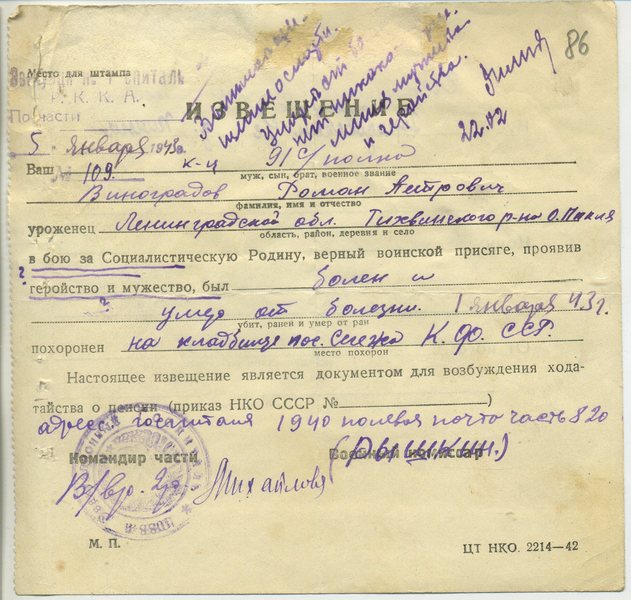 86
Место для штампа
госпиталь
Р. К. К. А.
По части
ИЗВЕЩЕНИЕ
и геройства.
22.
5 января 1943г.
№ 109.
Ваш к-ц 91 с/полка
муж, сын, брат, военное звание
Виноградов Роман Петрович
фамилия, имя и отчество
уроженец Ленинградской обл. Тихвинского р-на
область, район, деревня и село
в бою за Социалистическую Родину, верный воинской присяге, проявив
?
геройство и мужество, был болен и
?
умер от болезни. 1 января 43 г.
убит, ранен и умер от ран
похоронен на кладбище пос. Сегежа К. Ф. ССР.
место похорон
Настоящее извещение является документом для возбуждения хода-
тайства о пенсии (приказ НКО СССР №
)
адрес госпиталя 1940 полевая почта часть 820
Командир части
Военный комиссар
(Рышкин.)
В/вр. 2р.
Михайлова
М. П.
ЦТ НКО. 2214—42